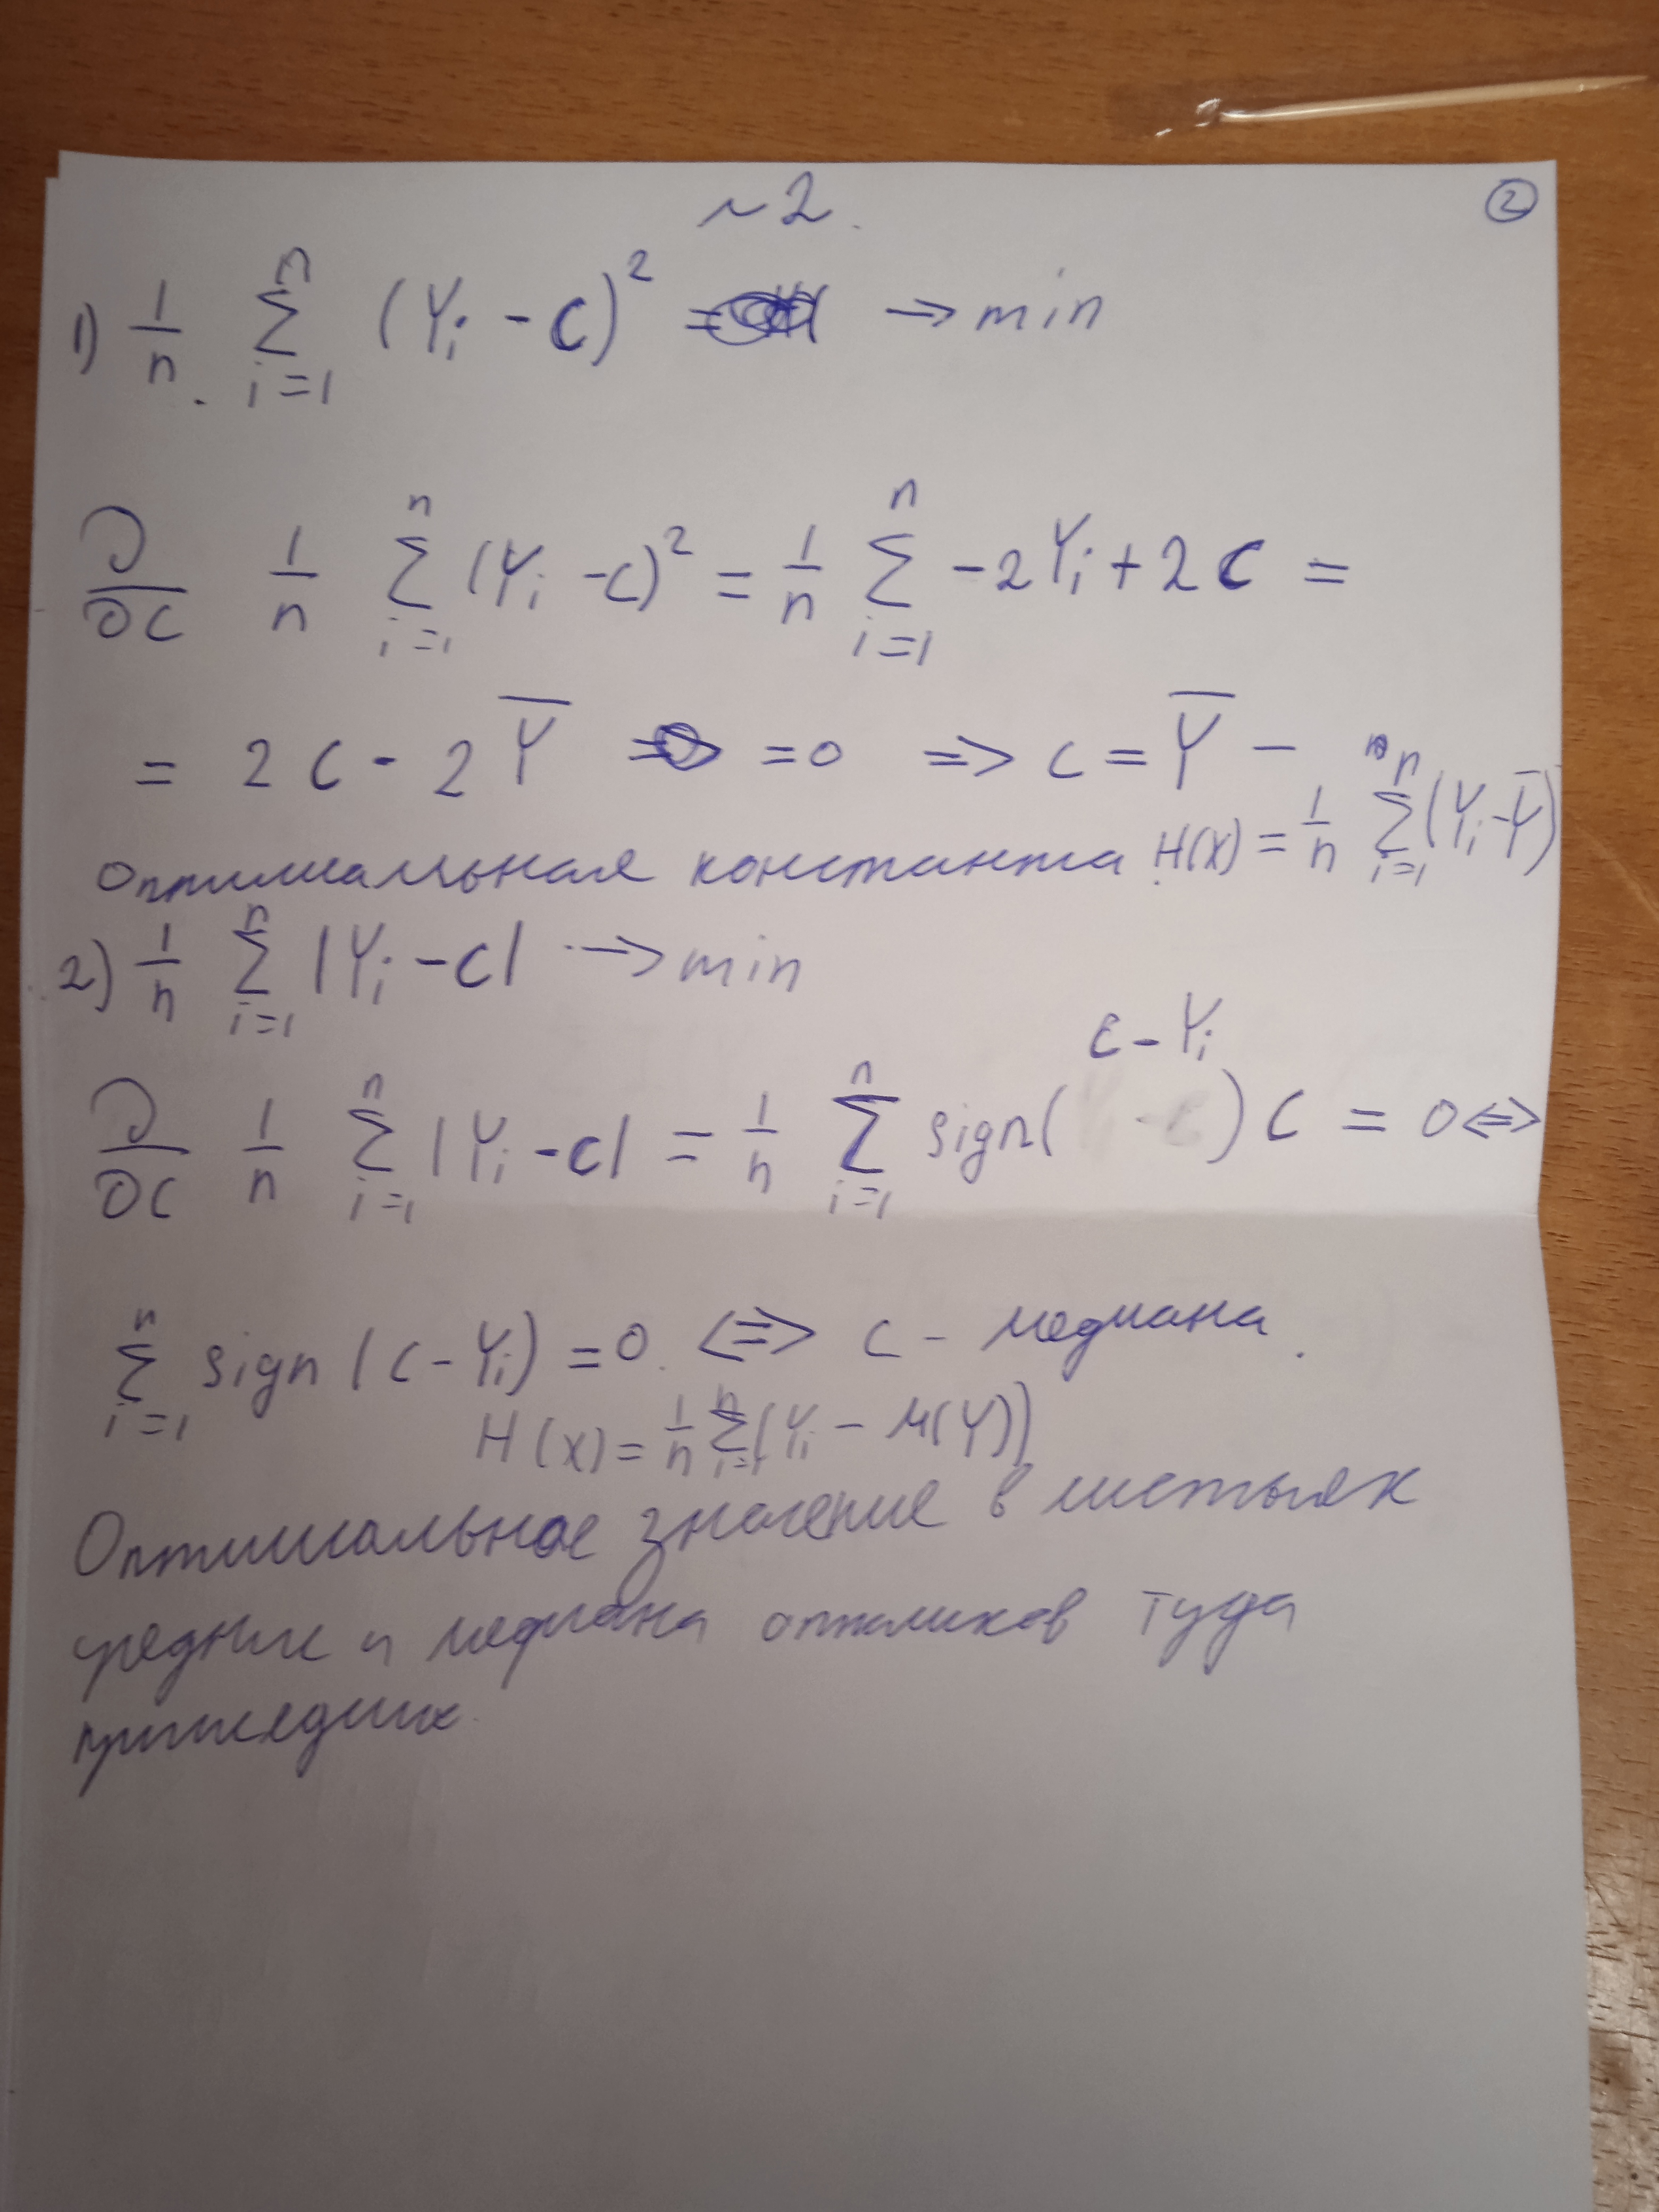 ②
~2.
1) 1/n ∑_{i=1}^{n} (Y_i - c)² → min
∂/∂c 1/n ∑_{i=1}^{n} (Y_i - c)² = 1/n ∑_{i=1}^{n} -2Y_i + 2c =
= 2c - 2Ȳ = 0 => c = Ȳ -
оптимальная константа. H(X) = 1/n ∑_{i=1}^{n} (Y_i - Ȳ)
2) 1/n ∑_{i=1}^{n} |Y_i - c| → min
c - Y_i
∂/∂c 1/n ∑_{i=1}^{n} |Y_i - c| = 1/n ∑_{i=1}^{n} sign( ) c = 0 <=>
∑_{i=1}^{n} sign(c - Y_i) = 0. <=> c - медиана.
H(X) = 1/n ∑_{i=1}^{n} (Y_i - M(Y))
Оптимальное значение в листьях
средние и медиана откликов туда
пришедших.